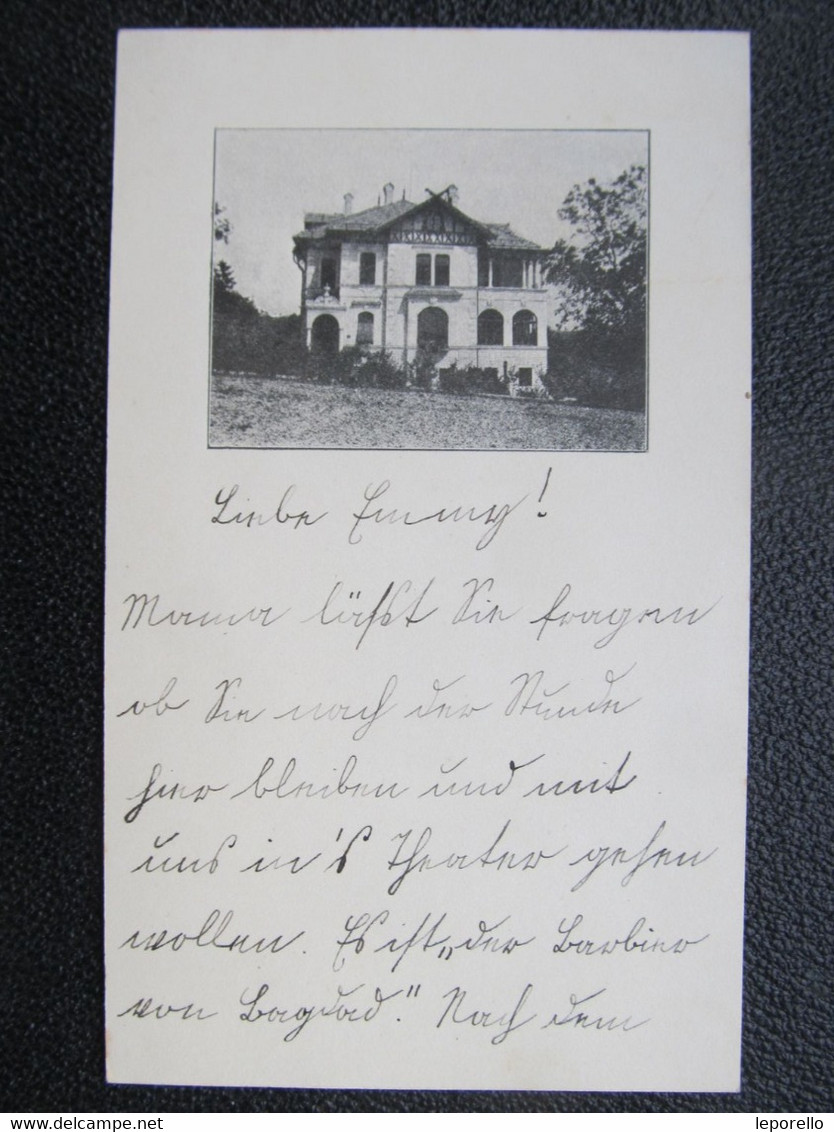 Liebe Emmy!
Mama läßt Sie fragen
ob Sie nach der Stunde
hier bleiben und mit
uns in's Theater gehen
wollen. Es ist „der Barbier
von Bagdad." Nach dem
leporello